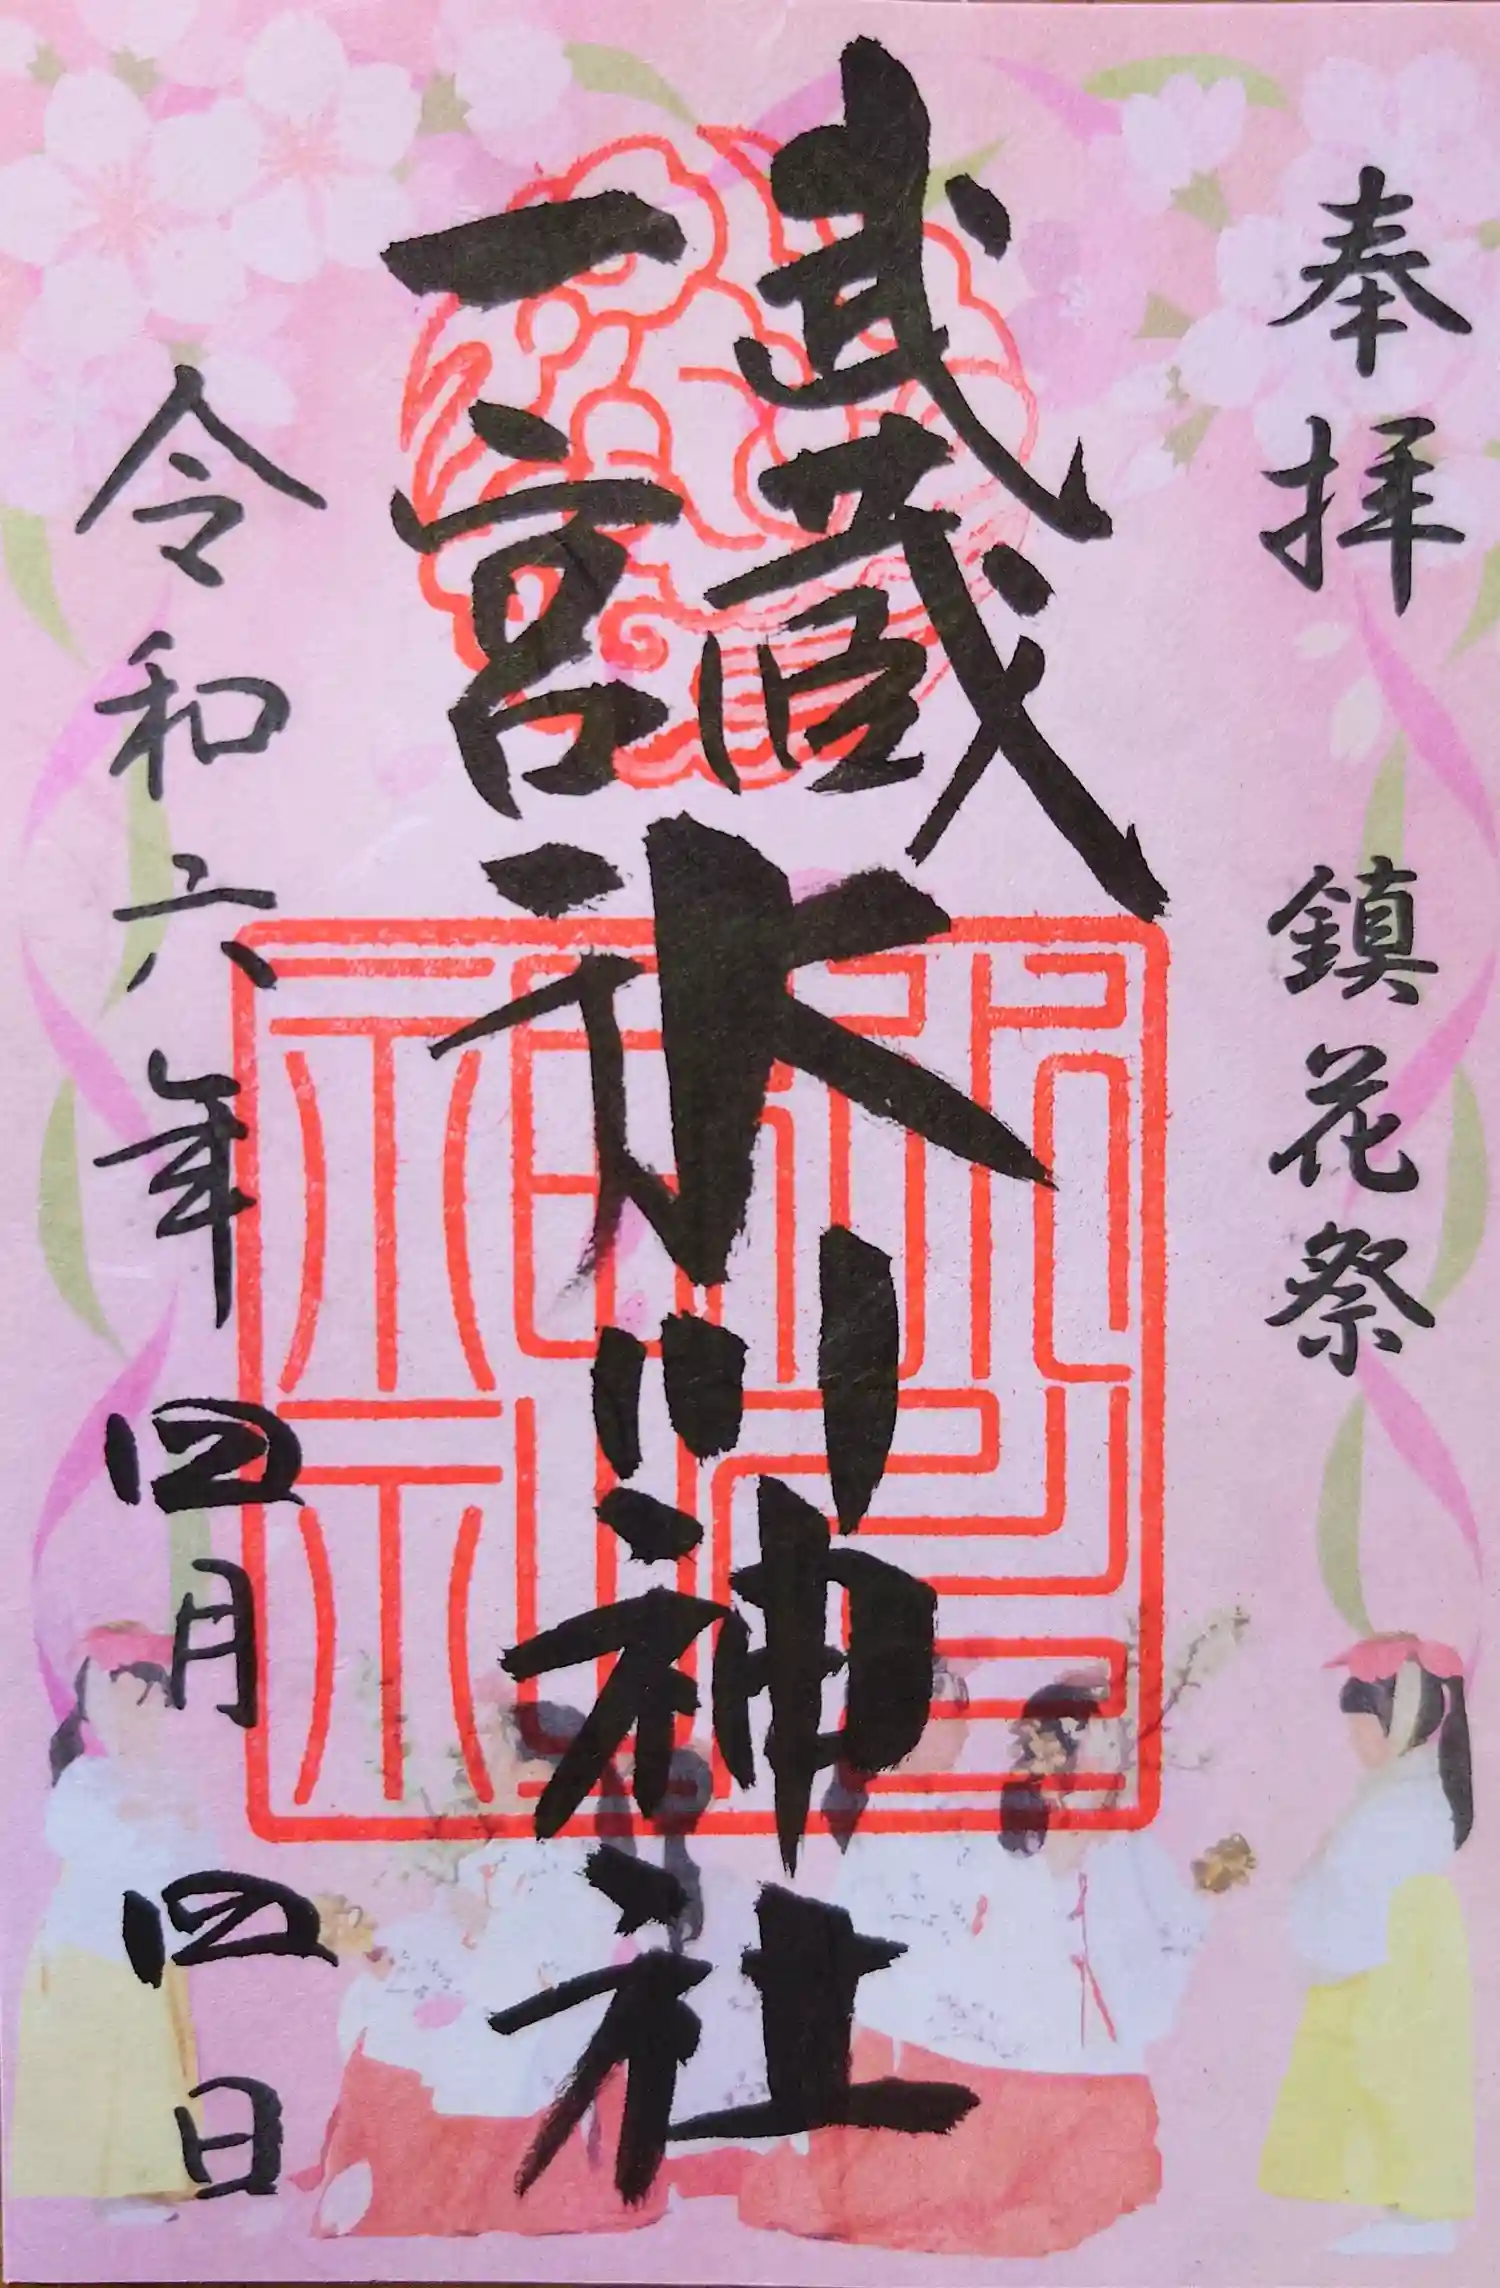 奉拝　鎮花祭
武蔵
一宮
氷川神社
令和六年四月四日